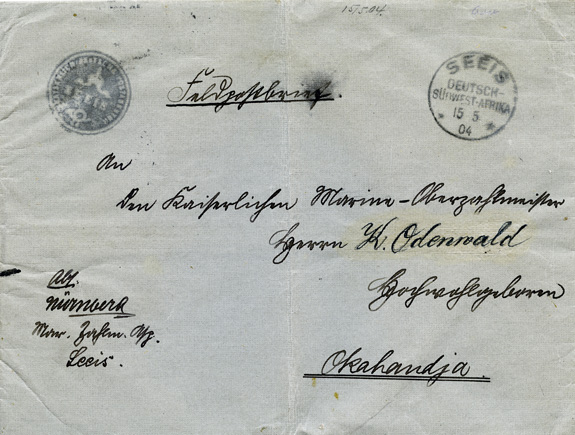 15/5.04.
Feldpostbrief.
SEEIS
DEUTSCH-
SÜDWEST-AFRIKA
15 5
* 04 *
An
den Kaiserlichen Marine-Oberzahlmeister
Herrn K. Odenwald
Hochwohlgeboren
Okahandja.
Abs.
Nürnberg
Mar. Zahlm. Asp.
Seeis.